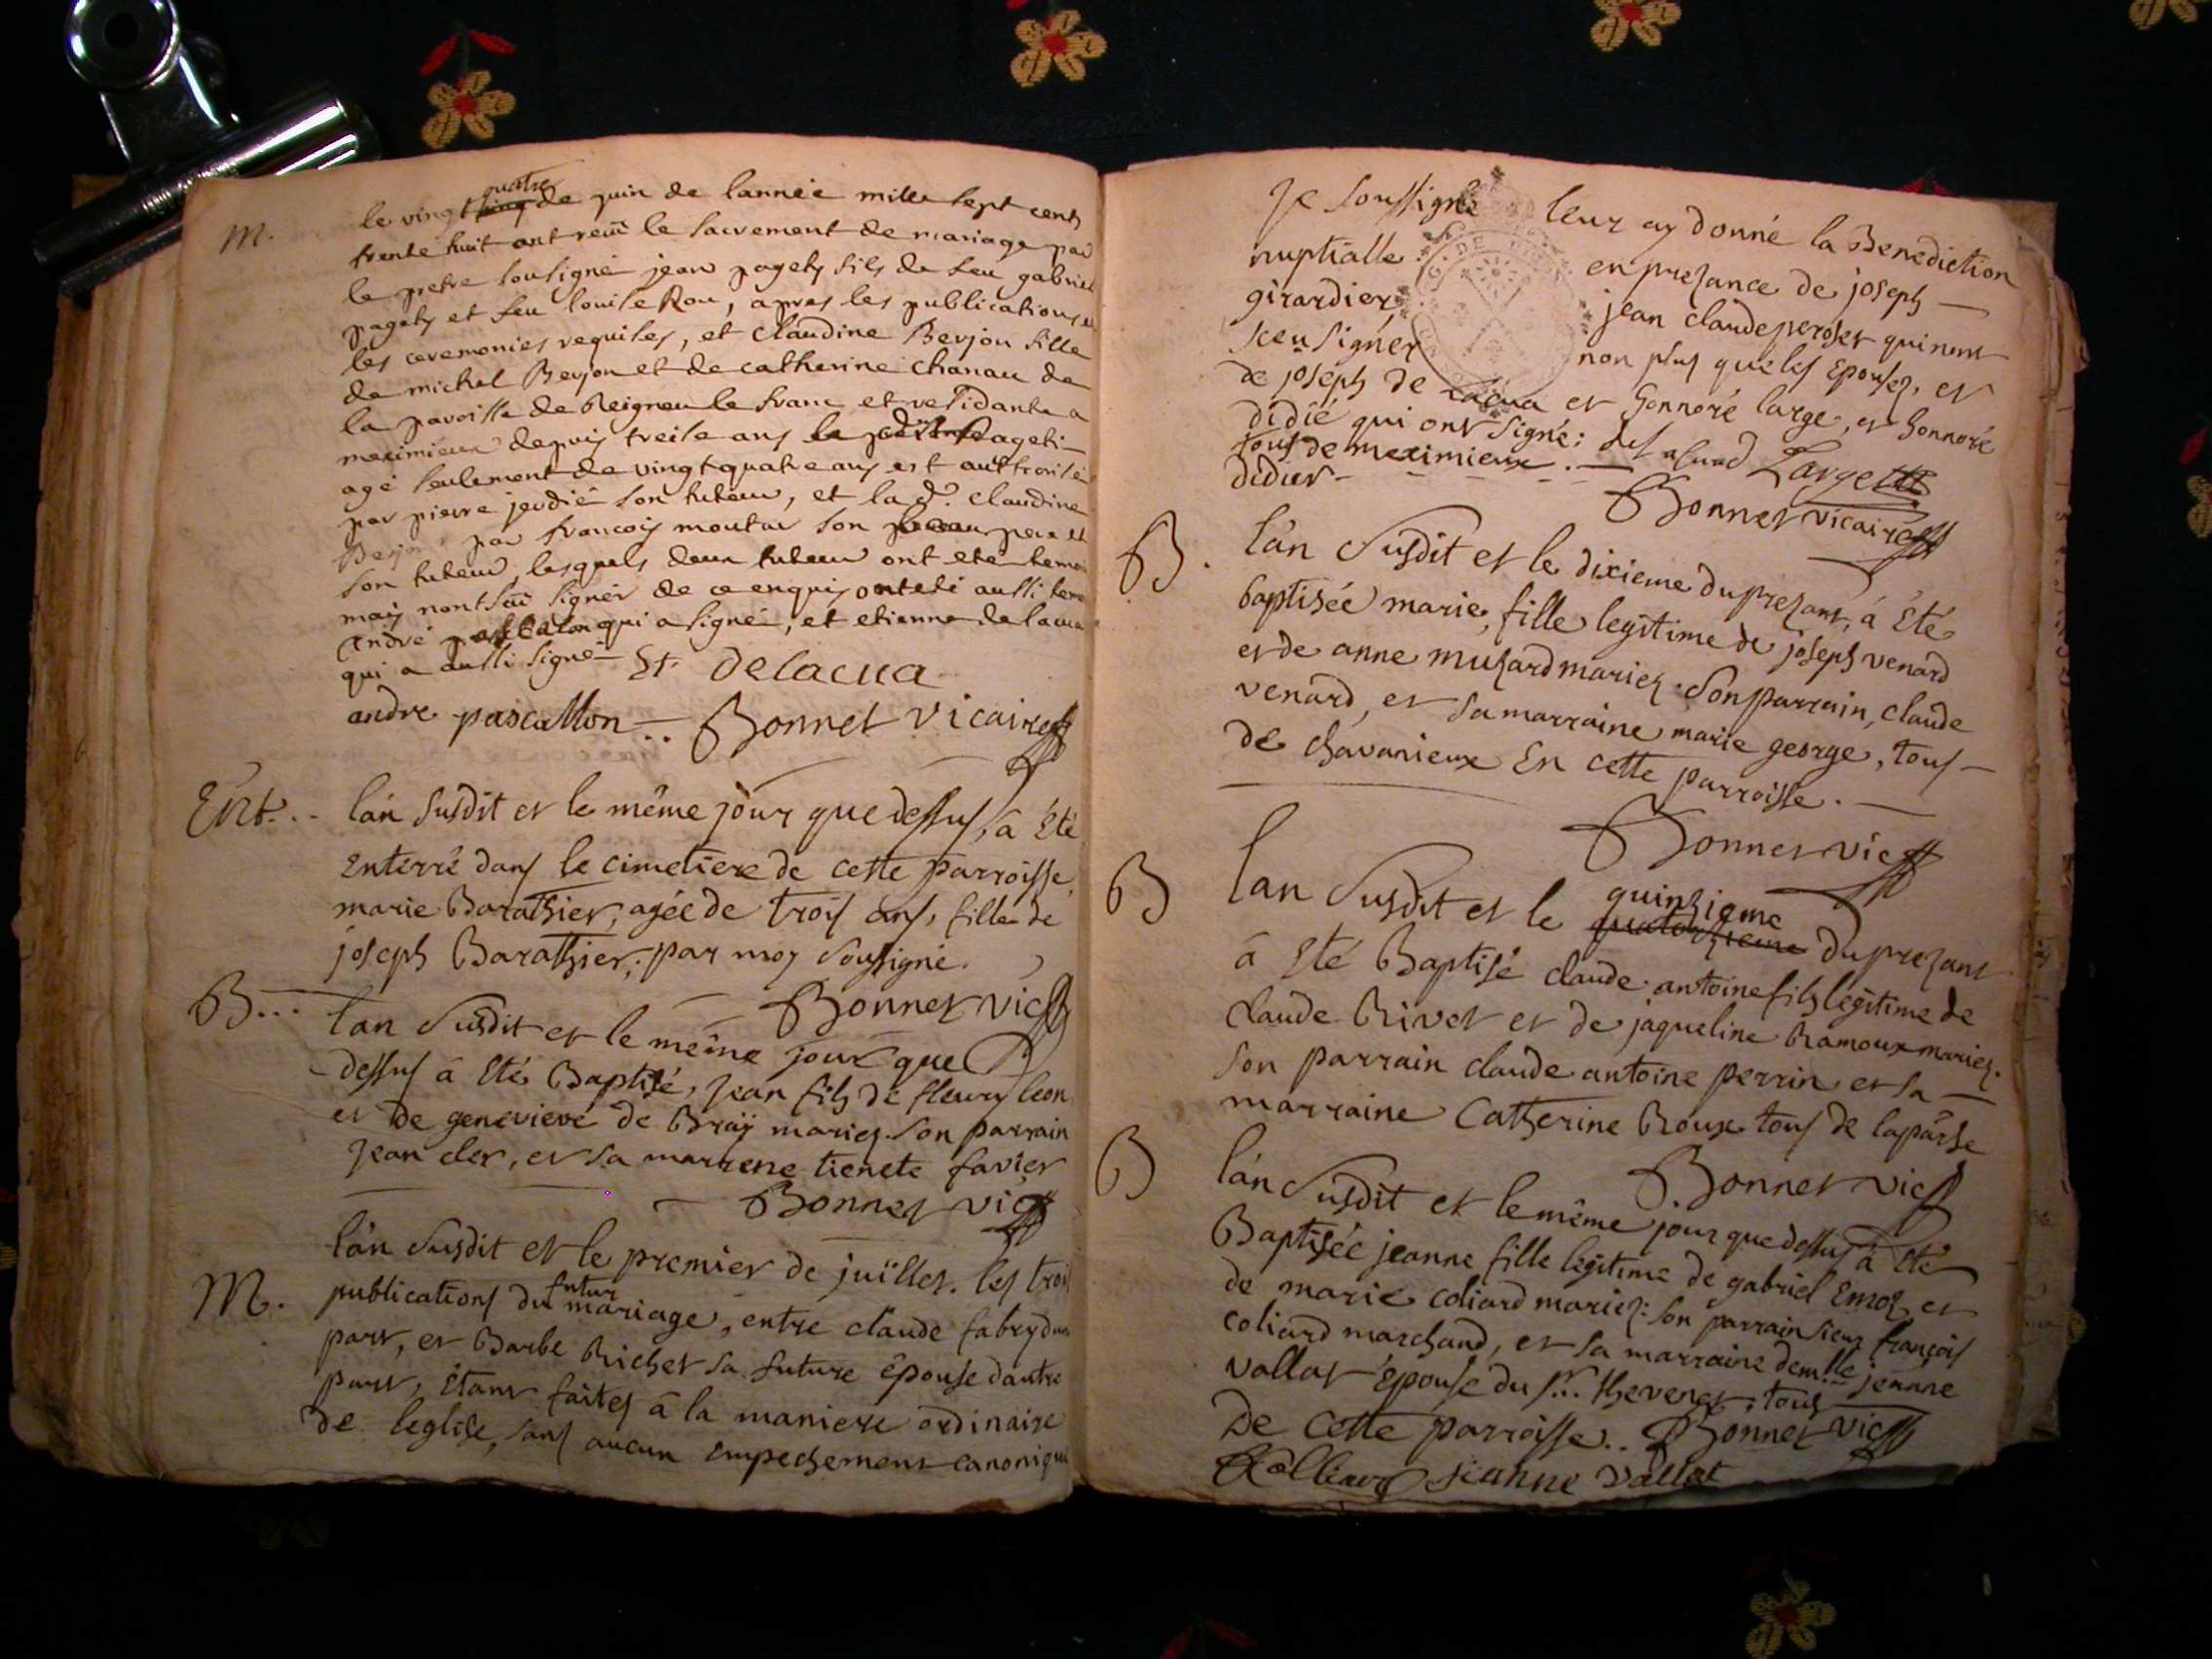 M. le vingt quatre de juin de lannée mille sept cents
trente huit ont reçu le sacrement de mariage par
le pretre sousigné jean pagets fils de feu gabriel
pagets et feu louise Rou, apres les publications et
les ceremonies requises, et Claudine Berjon fille
de michel Berjon et de catherine chanau de
la paroisse de Reigneu le franc et residante a
meximieux depuis treise ans pageti
agé seulement de vingt quatre ans est authorisé
par pierre jeudié son tuteur, et la d. claudine
Berjon par francois moutar son pere et
son tuteur, lesquels deux tuteur ont eté temoi
mais nont sçu signer de ce enquis ont eté aussi temo
andré pascalon qui a signé, et etienne delacua
qui a aussi signé Et delacua
andre pascallon Bonnet vicaire
Ent. lán susdit et le même jour que dessus, á Eté
Enterré dans le cimetiere de cette parroisse,
marie Barathier, agée de trois ans, fille de
joseph Barathier; par moy soussigné.
Bonnet vic
B... lan susdit et le même jour que
dessus á Eté Baptisé, jean fils de fleury leon
et de genevieve de Bray mariez. son parrain
jean cler, et sa marrene tienete favier
Bonnet vic
lán susdit et le premier de juïllet. les trois
M. publications du futur mariage, entre claude fabry dune
part, et Barbe Richet sa future épouse dautre
part, étant faites á la maniere ordinaire
de leglise, sans aucun empechement canonique
je soussigné leur ay donné la Benediction
nuptialle en prezance de joseph
girardier, jean claude peroset qui nont
sceu signer non plus que les Epousez, et
de joseph de lacua et honnoré large, et honnoré
didié qui ont signé; Largette
tous de meximieux.
didier
Bonnet vicaire
B. lán susdit et le dixieme du prezant, á Eté
baptisée marie, fille legitime de joseph venard
et de anne muzard mariez. son parrain, claude
venard, et sa marraine marie george, tous
de chavanieux En cette parroisse.
Bonnet vic
B lan susdit et le quinzieme quatorzieme du prezant
á Eté Baptisé claude antoine fils legitime de
claude Rivet et de jaqueline Ramoux mariez.
son parrain claude antoine perrin et sa
marraine Catherine Roux tous de laparse
Bonnet vic
B lán susdit et le même jour que dessus á Eté
Baptisée jeanne fille legitime de gabriel Emoz et
de marie coliard mariez: son parrain sieur françois
coliard marchand, et sa marraine demlle jeanne
vallat Épouse du sr. thevenet, tous
de cette parroisse.. Bonnet vic
Colliard jeanne vallat